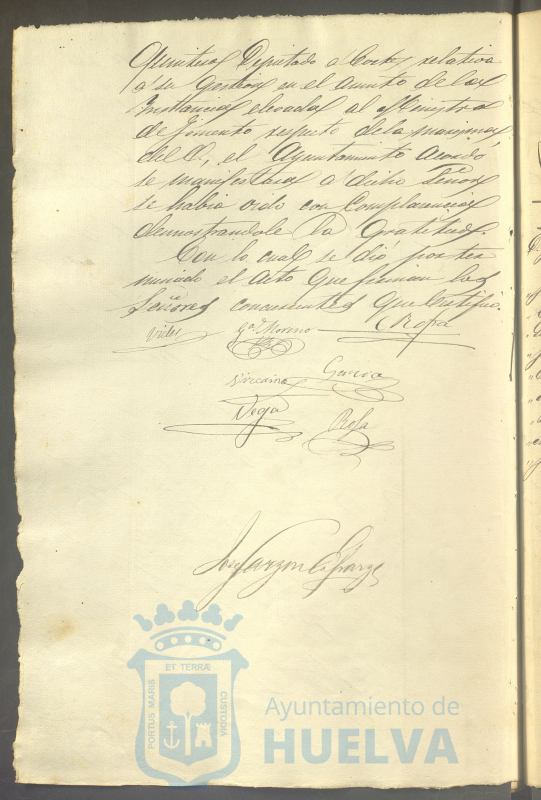 Quintero, Diputado a Cortes, relativa
a su gestion en el asunto de las
Instancias elevadas al Ministro
de Fomento respecto de las marismas
del O, el Ayuntamiento acordó
se manifestara a dicho Señor
se habia oido con complacencia
demostrandole la Gratitud.
Con lo cual se dió por ter
minado el acto que firman los
Señores concurrentes que Certifico.
Vides Ga Moreno Rofa
Vizcaino Garcia
Vega Rofa
Jose Garzon
ET TERRÆ
PORTUS MARIS
CUSTODIA
Ayuntamiento de
HUELVA